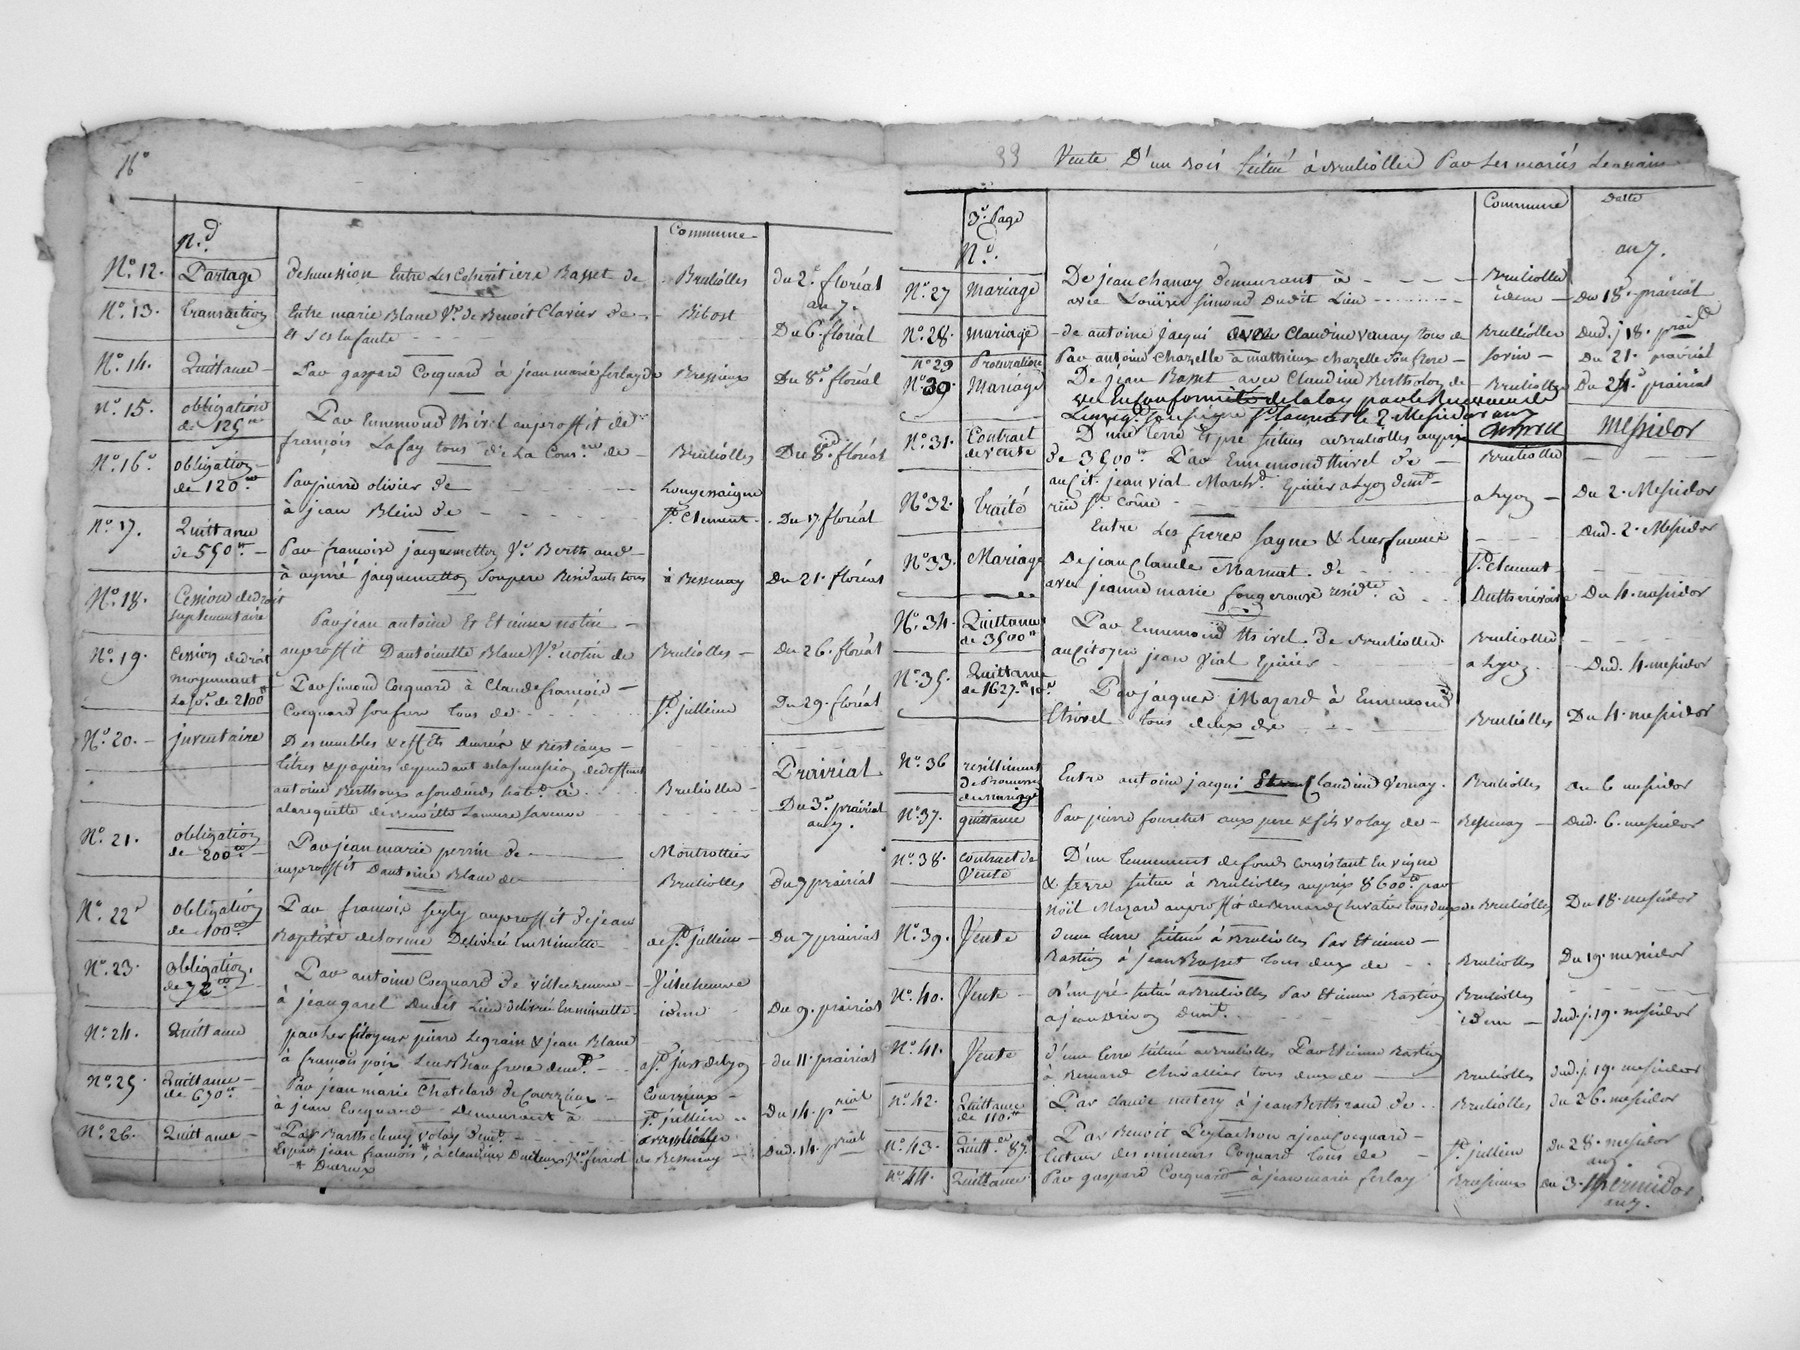 16
Commune
N.d
N.º 12. Partage de succession Entre Les Coheritiers Basset de Brulliolles du 2 floréal
an 7.
N.º 13. transaction Entre marie Blanc V.e de Benoit Clavier de Bibost
et ses Enfants Du 6. floréal
N.º 14. Quittance Par gaspard Cocquard à jean marie ferlay de Bressieux Du 8. floréal
N.º 15. obligation Par Ennemond thivel au proffit de
de 125 françois Lafay tous de La Com.ne de Brulliolles Du 8 floréal
N.º 16. obligation
de 120 Par pierre olivier de Longessaigne
à jean Blein de S.t Clement Du 17 floréal
N.º 17. Quittance
de 550 Par françoise jacquemetton V.e Berthaud
à aymé jacquemetton Son pere Residants tous à Bessenay Du 21. floréal
N.º 18. Cession de droit
suplementaire Par jean antoine Et Etienne notin
N.º 19. Cession de droit au proffit D'antoinette Blanc V.e notin de Brulliolles Du 26. floréal
moyennant
La so.e de 2100 Par Simond Cocquard à Claude françois
Cocquard son frere tous de S.t jullien Du 29. floréal
N.º 20. inventaire Des meubles & effets denrées & bestiaux
titres & papiers dependant de la succession du deffunt Prairial
antoine Berthoux a son deces hab.t à Brulliolles
a la requette de Du 3.e prairial
an 7.
N.º 21. obligation
de 200 Par jean marie perrin de Montrottier
au proffit D'antoine Blanc de Brulliolles du 7 prairial
N.º 22 obligation Par françois au proffit de jean
de 100 Baptiste delorme Delivrée En Minutte de S.t jullien Du 7 prairial
N.º 23. obligation Par antoine Cocquard de Villechenève Villechenève
de 72 à jean garel dudit Lieu delivrée En minutte idem Du 9. prairial
N.º 24. Quittance par les Citoyens pierre Legrain & jean Blanc
à françois poix Leur Beau frere dem.t a S.t just de Lyon du 11. prairial
N.º 25. Quittance Par jean marie Chatelard de Courzieu Courzieux
de 670 à jean Cocquard Demeurant à S.t jullien Du 14. prial
N.º 26. Quittance Par Barthelemy Volay dem.t
de Bessenay Dud. 14. prial
33 Vente D'un Bois situé à Brulliolles Par Les mariés
3.e Page Commune Datte
N.d an 7.
N.º 27 Mariage De jean chanay demeurant à Brulliolles
avec Louise simond dudit Lieu idem Du 18. prairial
N.º 28. Mariage de antoine jacqui avec Claudine vernay tous de Brulliolles Dud. j. 18. prial
N.º 29 Procuration Par antoine Chazelle à matthieux chazelle son frere Savin Du 21. prairial
N.º 30. Mariage De jean Basset avec Claudine Bertholon de Brulliolles Du 24. prairial
2 Messidor an 7
N.º 31. Contract D'une terre & pré situés a Brulliolles au prix Messidor
de vente de 3500 Par Ennemond thivel de Brulliolles
au Cit. jean vial March.d Epicier a Lyon dem.t
N.º 32. traité S.t Côme a Lyon Du 2. Messidor
Entre Les freres fagne & Leurs femmes Dud. 2. Messidor
N.º 33. Mariage De jean Claude Marmet de S.t Clement
avec jeanne marie fougerouse resid.te à Du 4. messidor
N.º 34. Quittance Par Ennemond thivel de Brulliolles Brulliolles
de 3500 au Citoyen jean vial Epicier a Lyon Dud. 4. messidor
N.º 35. Quittance
de 1627 Par jacques Mazard à Ennemond
thivel tous deux de Brulliolles Du 4. messidor
N.º 36 resilliment
de Promesse Entre antoine jacqui Claudine Vernay. Brulliolles du 6 messidor
de mariage
N.º 37. quittance Par pierre fouretut aux pere & fils volay de Bessenay Dud. 6. messidor
N.º 38. Contract de D'un tennement de fonds consistant En vigne
Vente & terre situé à Brulliolles au prix 8600 par
Noël Mazard au proffit de Bernard Chevalier tous deux de Brulliolles Du 18. messidor
N.º 39. Vente d'une terre située à Brulliolles Par Etienne
Rastin à jean Basset tous deux de Brulliolles Du 19. messidor
N.º 40. Vente d'un pré situé a Brulliolles Par Etienne Rastin Brulliolles
a jean dem.t idem Dud. j. 19. messidor
N.º 41. Vente d'une terre située a Brulliolles Par Etienne Rastin
à Bernard Chevallier tous deux de Brulliolles Dud. j. 19. messidor
N.º 42. Quittance
de 110 Par Claude à jean Berthrand de Brulliolles du 26. messidor
N.º 43. Quitt. de 87 Par Benoit Peylachon a jean Cocquard
tuteur des mineurs Coquard tous de S.t jullien du 28. messidor
an 7
N.º 44. Quittance Par gaspard Cocquard à jean marie ferlay Brussieux du 3. thermidor
an 7.